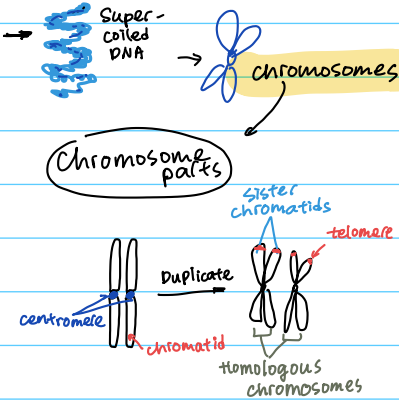 Super-
coiled
DNA
chromosomes
Chromosome
parts
sister
chromatids
telomere
Duplicate
centromere
chromatid
Homologous
chromosomes